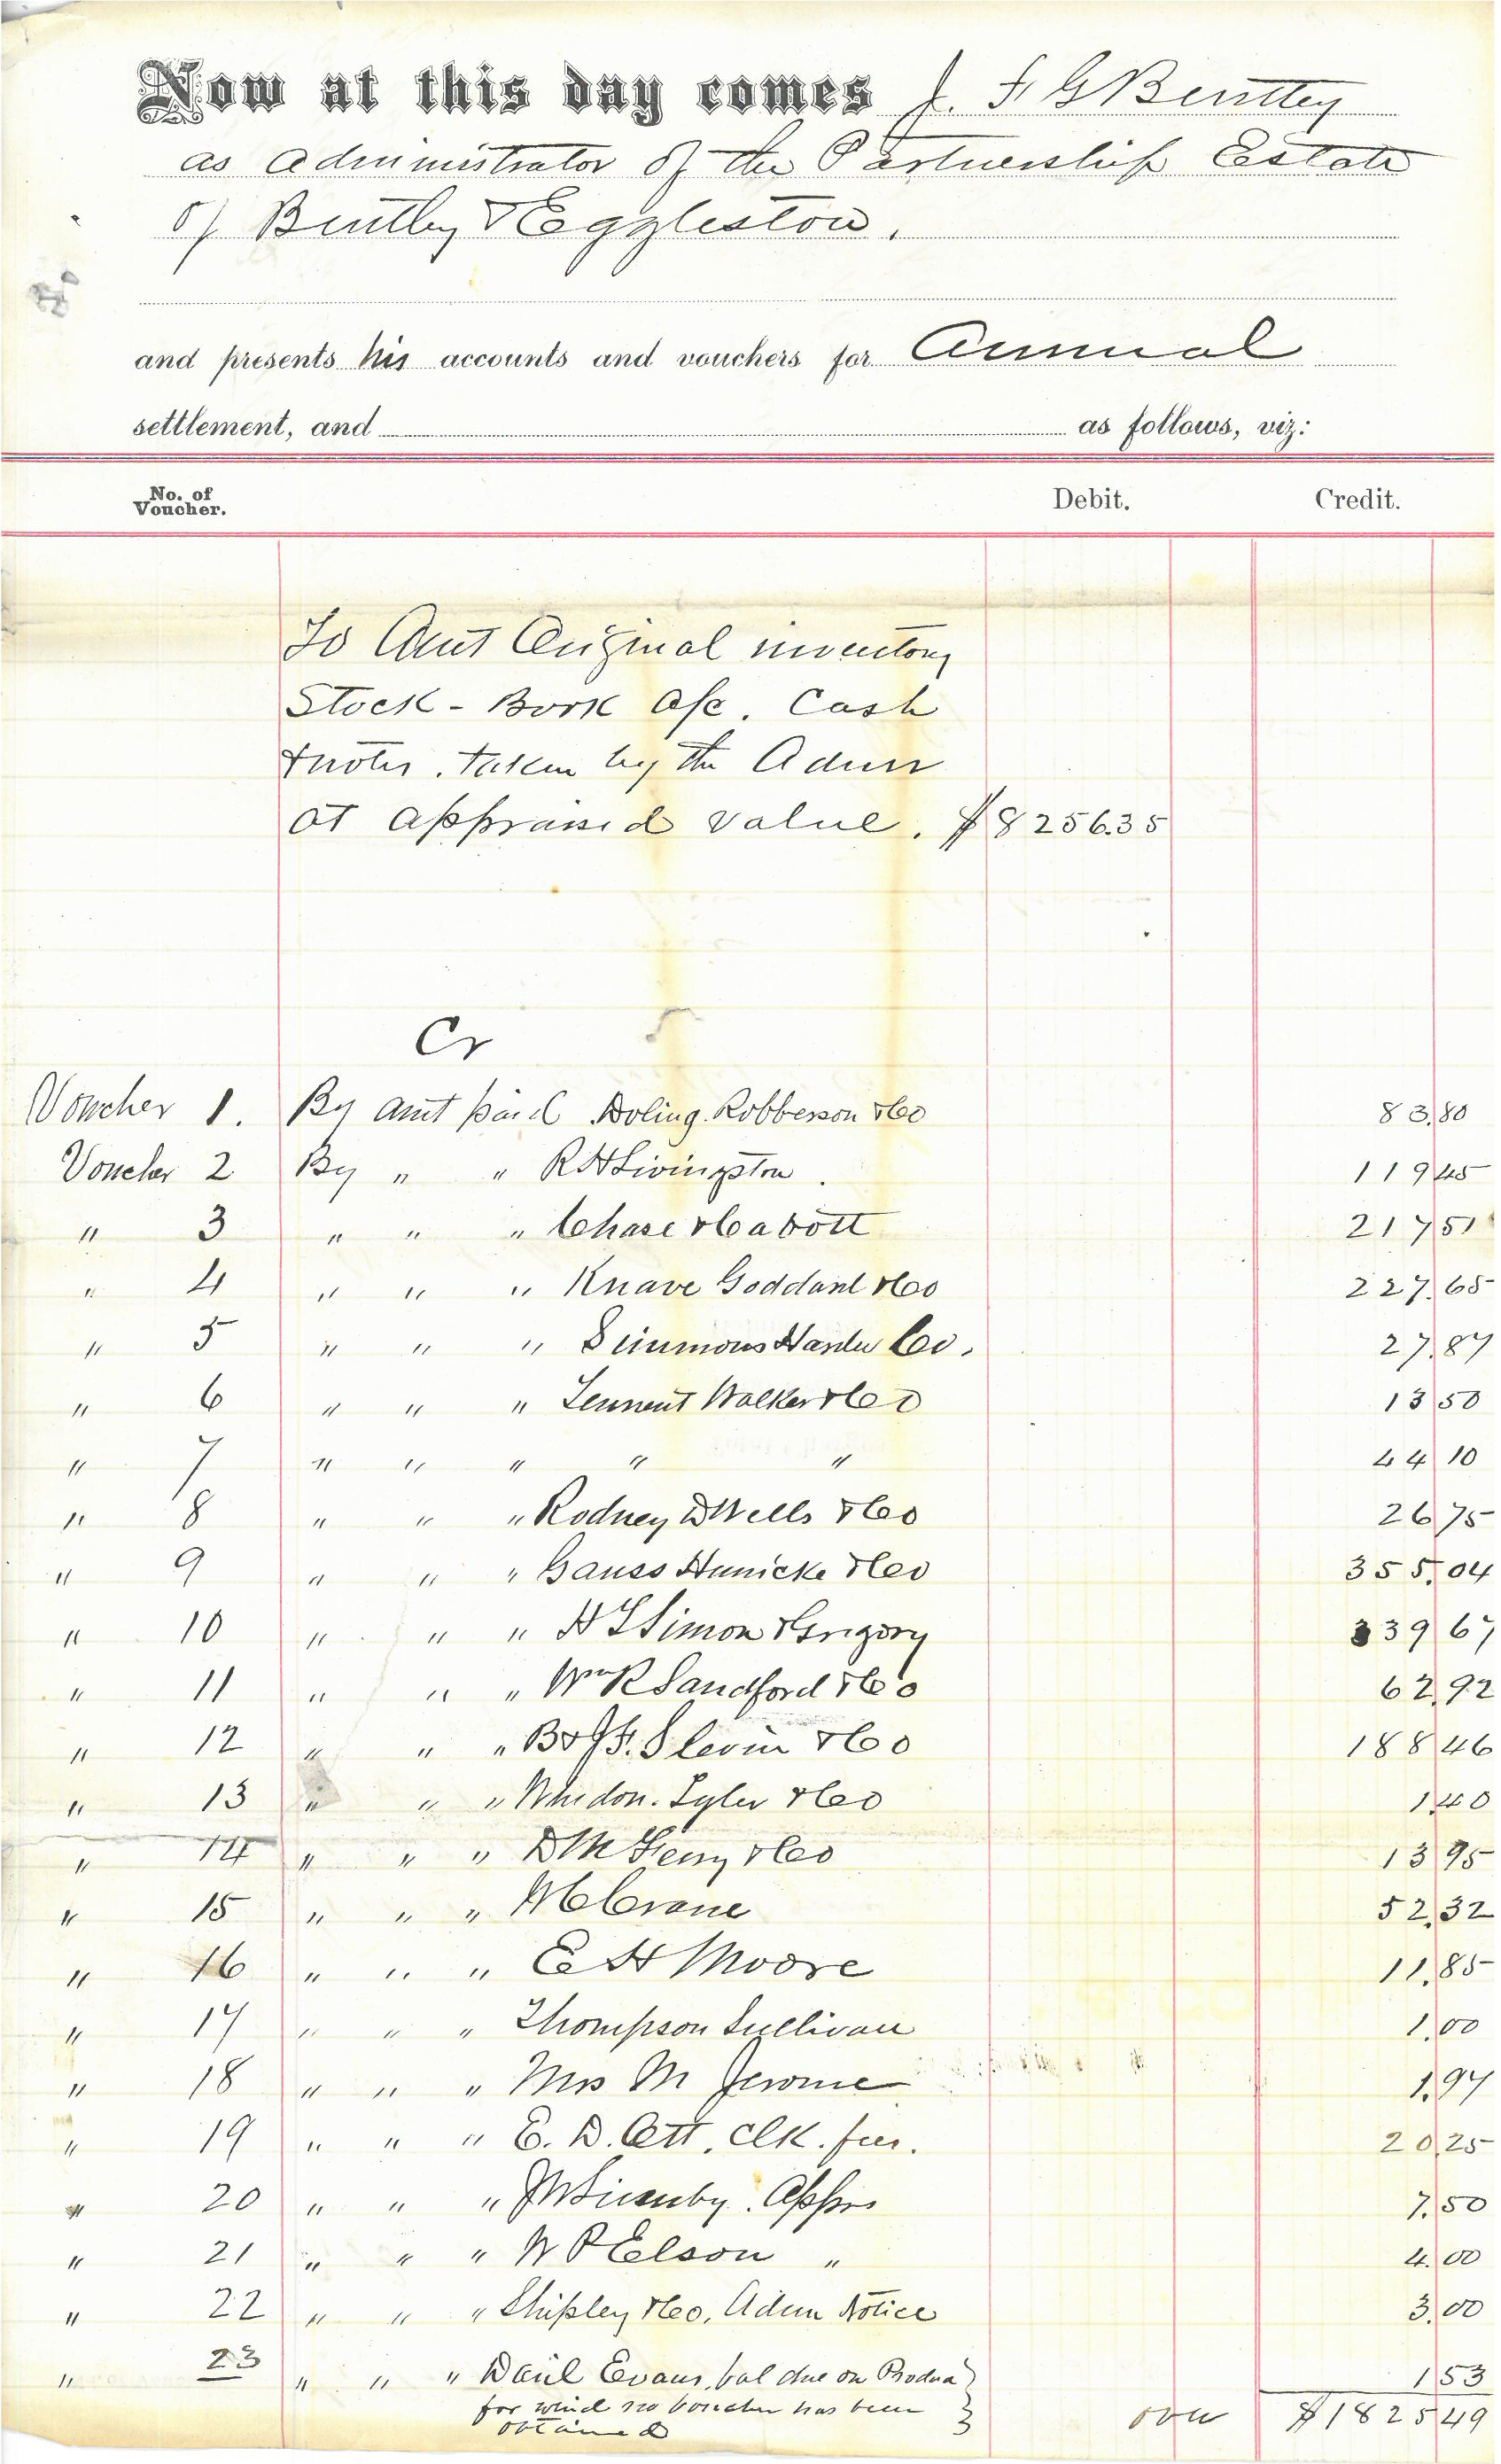 Now at this day comes J. F. G Bentley
as administrator of the Partnership Estate
of Bentley & Eggleston.
and presents his accounts and vouchers for Annual
settlement, and as follows, viz:
No. of Voucher. Debit. Credit.
To Amt Original inventory
Stock - Book a/c. Cash
& notes. taken by the Admr
at appraised value. $8256.35
Cr
Voucher 1. By amt paid Boling. Robberson & Co 83.80
Voucher 2 By " " R H Livingston. 119 45
" 3 " " " Chase & Cabott 217 51
" 4 " " " Knave Goddard & Co 227.65
" 5 " " " Simmons Hardw Co. 27.87
" 6 " " " Tennent Walker & Co 13 50
" 7 " " " " " 44 10
" 8 " " " Rodney D Wells & Co 26 75
" 9 " " " Gauss Hunicke & Co 355.04
" 10 " " " H T Simon & Gregory 339 67
" 11 " " " Wm R Sandford & Co 62.92
" 12 " " " B & J F. Slevin & Co 188 46
" 13 " " " Whedon. Tyler & Co 1 40
" 14 " " " D M & Co 13 95
" 15 " " " Crane 52.32
" 16 " " " E H Moore 11.85
" 17 " " " Thompson Sullivan 1.00
" 18 " " " Mrs M Jerome 1.97
" 19 " " " E. D. Ott. Clk. fees. 20.25
" 20 " " " Apprs 7.50
" 21 " " " W P Elson " 4.00
" 22 " " " Shipley & Co. Admr Notice 3.00
" 23 " " " Danl Evans, bal due on 1 53
for which no voucher has been
obtained over $1825 49